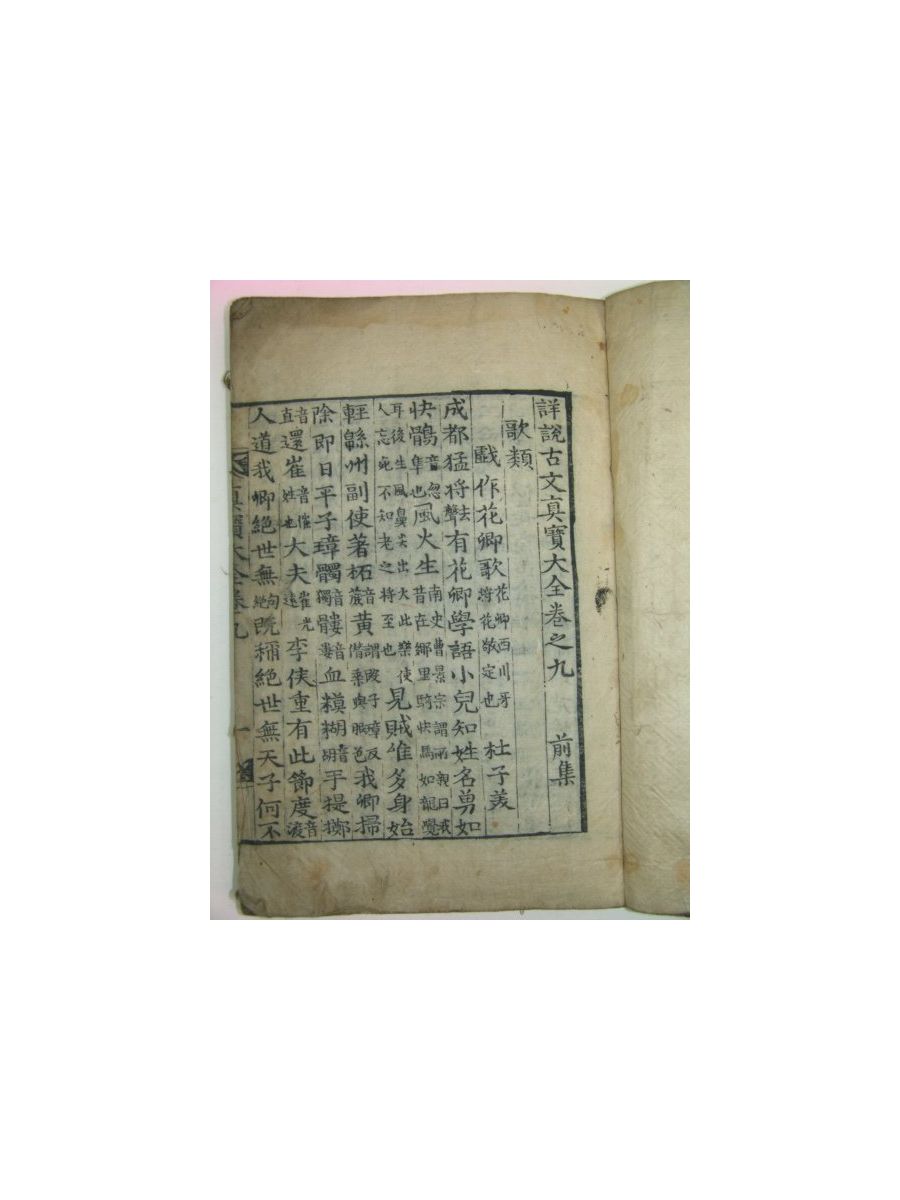 詳說古文真寶大全卷之九 前集
歌類
戲作花卿歌花卿西川牙將花敬定也 杜子美
成都猛將去聲有花卿學語小兒知姓名勇如
快鶻音忽隼也風火生南史曹景宗謂所親曰我昔在鄉里騎快馬如龍覺
耳後生風鼻尖出火此樂使人忘死不知老之將至也見賊惟多身始
輕緜州副使著柘音蔗黃謂段子璋反僭乘輿服色我卿掃
除即日平子璋髑音獨髏音婁血糢糊音胡手提擲
音直還崔音催姓也大夫崔光遠李侯重有此節度音渡
人道我卿絕世無句絕既稱絕世無天子何不
真寶大全卷九 一